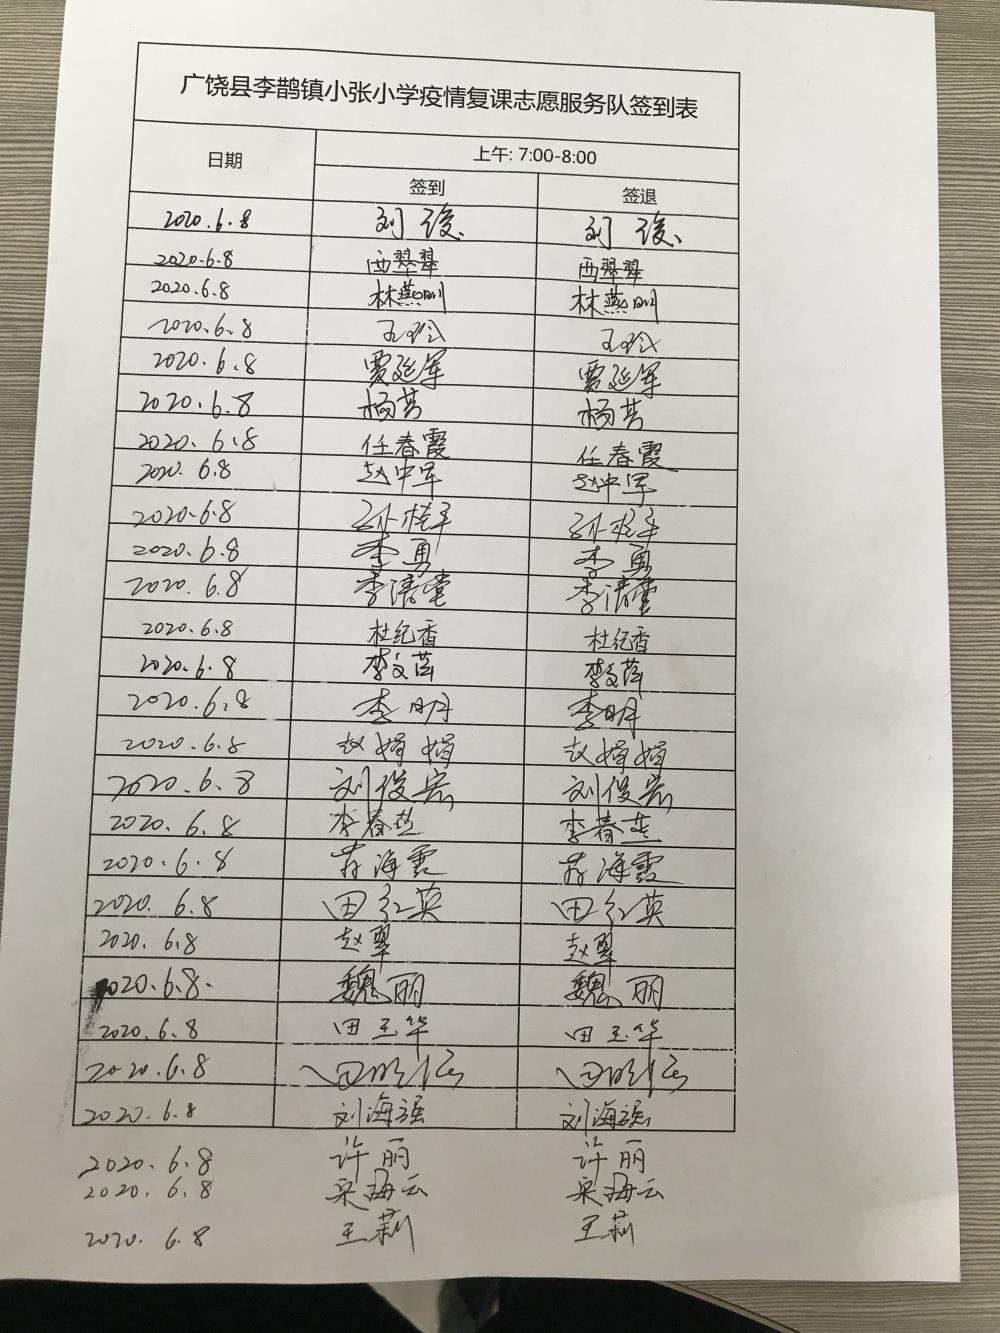 广饶县李鹊镇小张小学疫情复课志愿服务队签到表
日期 上午: 7:00-8:00
签到 签退
2020.6.8 刘俊 刘俊
2020.6.8 西翠翠 西翠翠
2020.6.8 林燕 林燕
2020.6.8 王玲 王玲
2020.6.8 贾延军 贾延军
2020.6.8 杨芸 杨芸
2020.6.8 任春霞 任春霞
2020.6.8 赵中军 赵中军
2020.6.8 孙桂平 孙桂平
2020.6.8 李勇 李勇
2020.6.8 李清 李清
2020.6.8 杜纪香 杜纪香
2020.6.8 李文萍 李文萍
2020.6.8 李明 李明
2020.6.8 赵娟娟 赵娟娟
2020.6.8 刘俊宏 刘俊宏
2020.6.8 李春燕 李春燕
2020.6.8 蒋海霞 蒋海霞
2020.6.8 田红英 田红英
2020.6.8 赵翠 赵翠
2020.6.8. 魏丽 魏丽
2020.6.8 田玉华 田玉华
2020.6.8 田 田
2020.6.8 刘海强 刘海强
2020.6.8 许丽 许丽
2020.6.8 海云 海云
2020.6.8 王莉 王莉